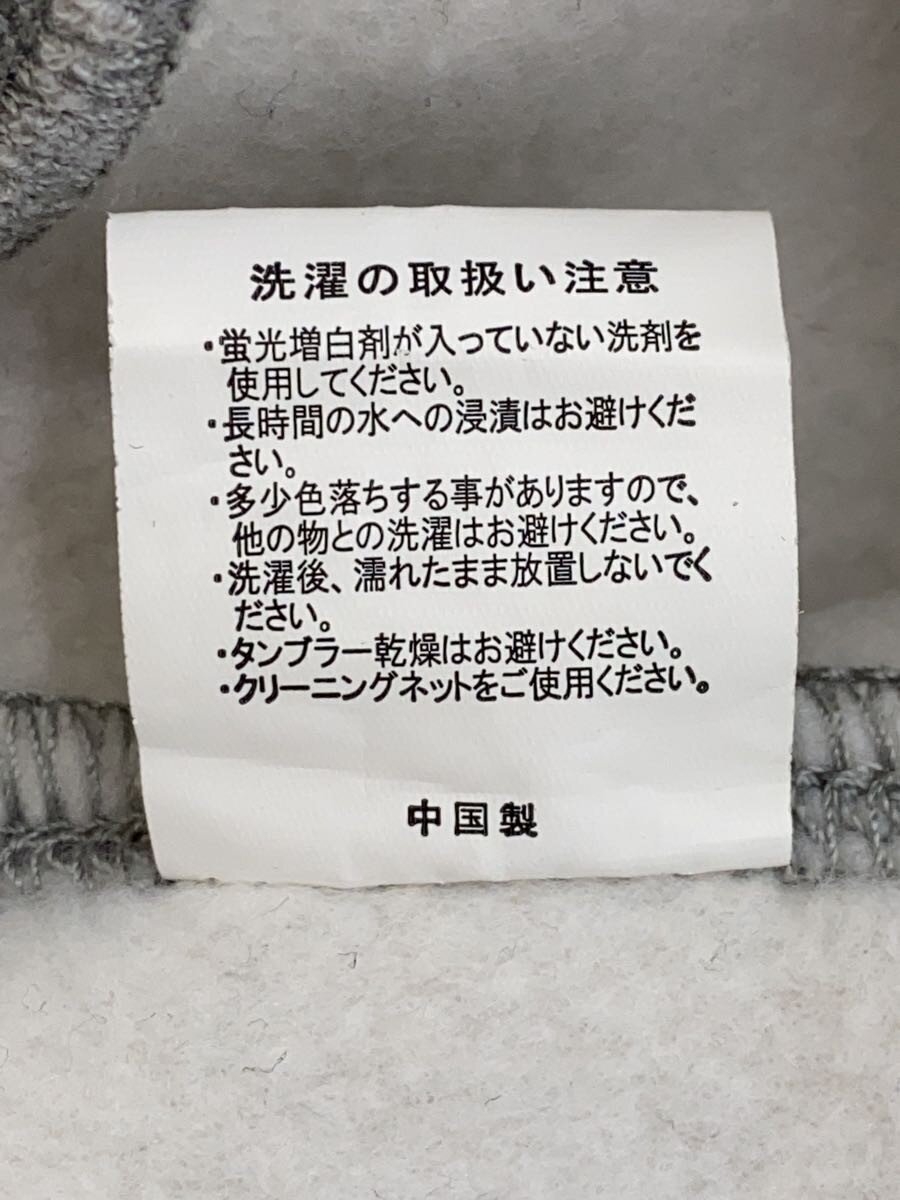 洗濯の取扱い注意
・蛍光増白剤が入っていない洗剤を
使用してください。
・長時間の水への浸漬はお避けくだ
さい。
・多少色落ちする事がありますので、
他の物との洗濯はお避けください。
・洗濯後、濡れたまま放置しないでく
ださい。
・タンブラー乾燥はお避けください。
・クリーニングネットをご使用ください。
中国製